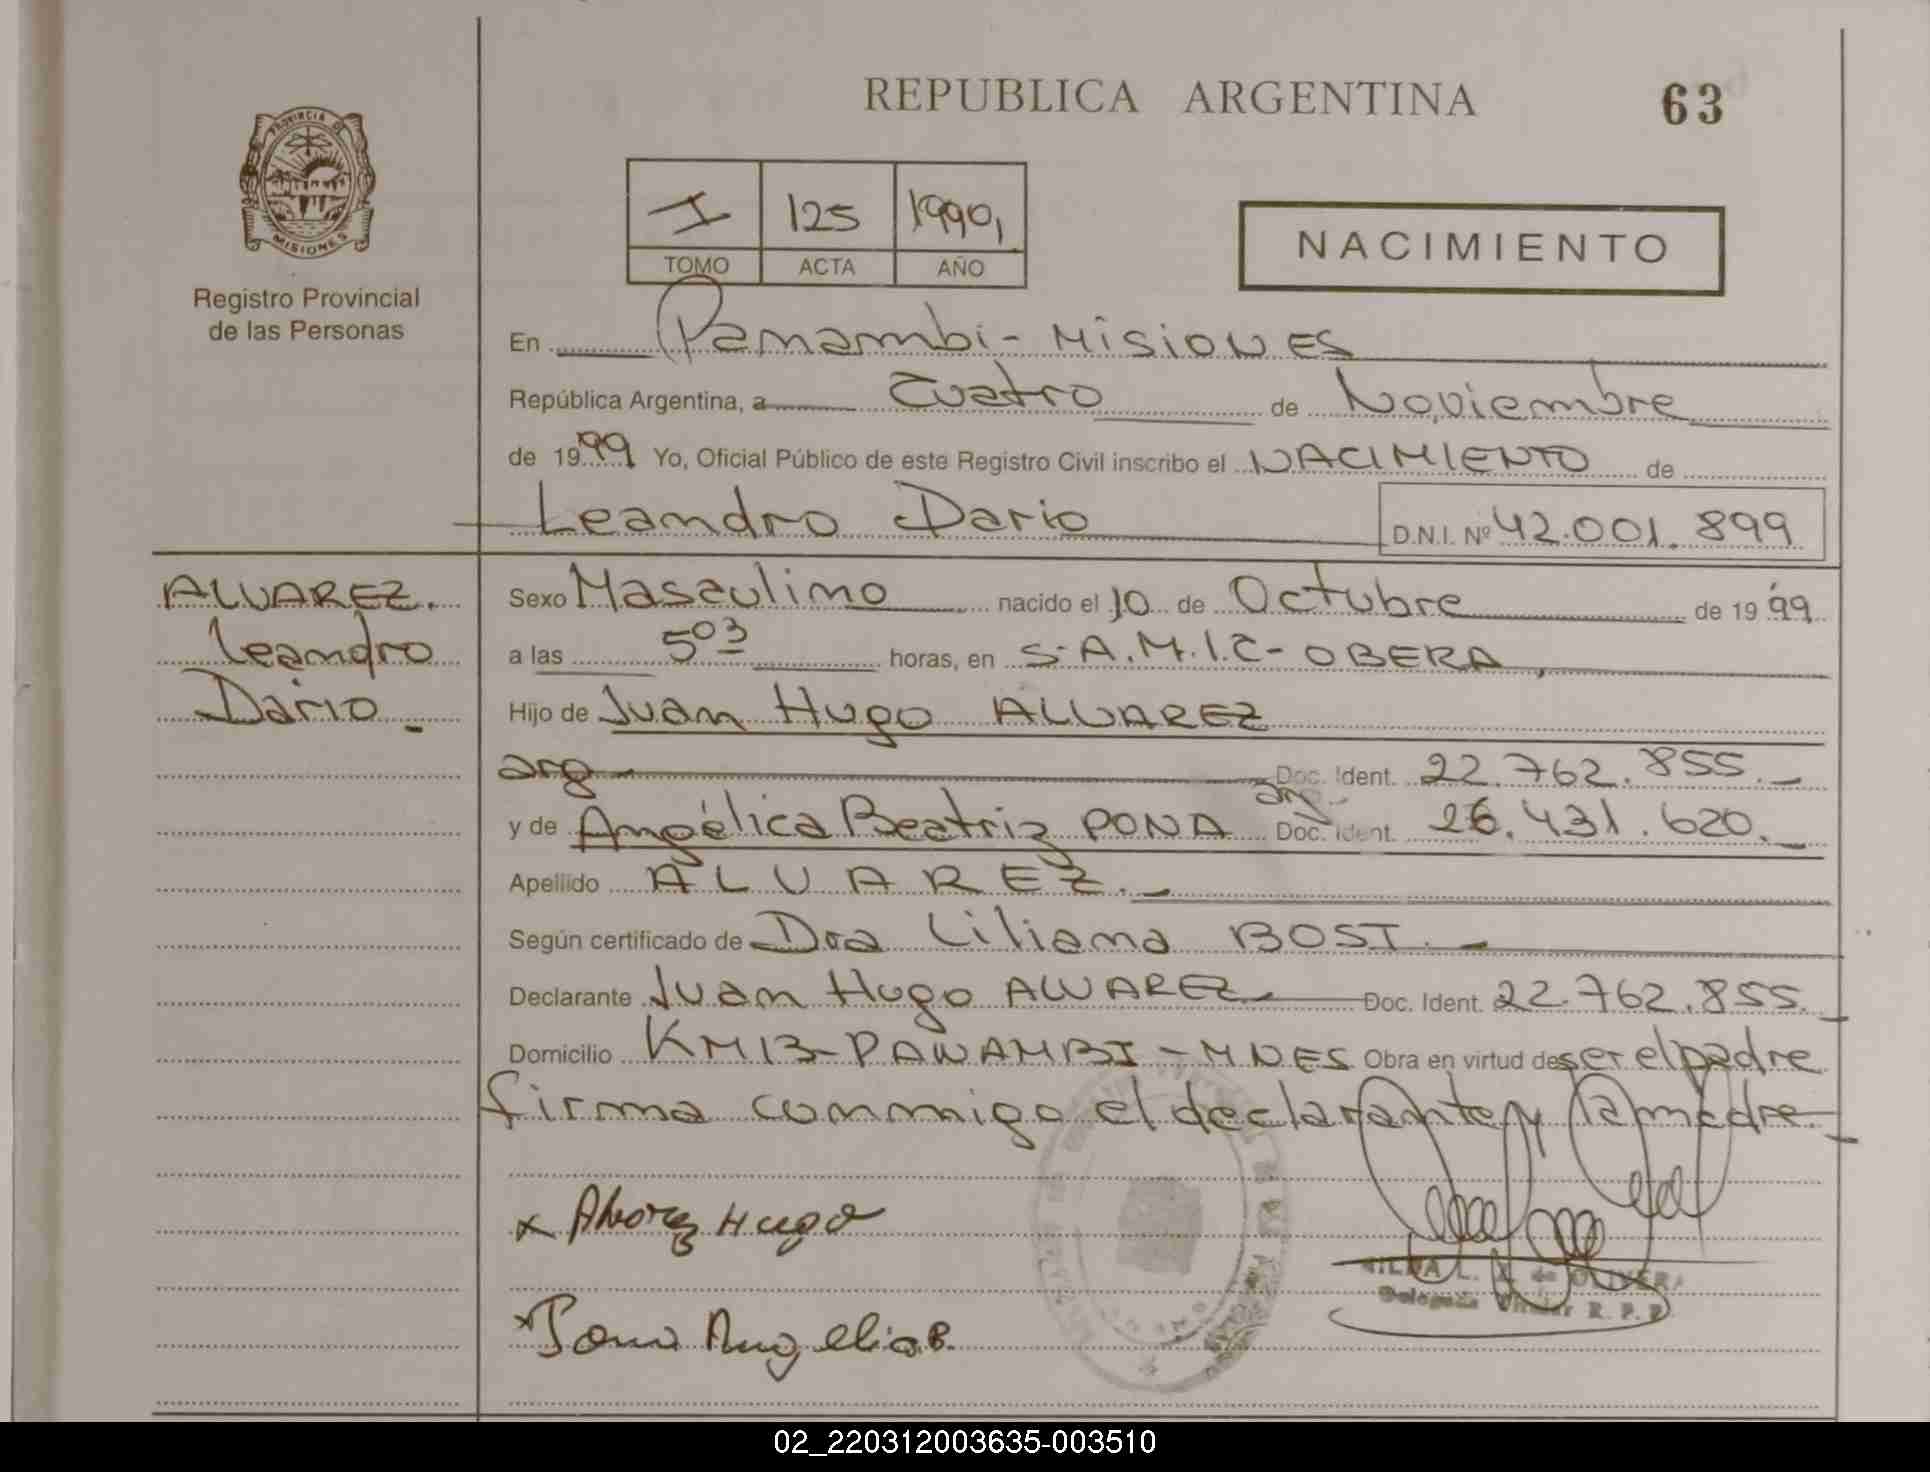 REPUBLICA ARGENTINA
63
PROVINCIA DE
MISIONES
Registro Provincial
de las Personas
I 125 1990,
TOMO ACTA AÑO
NACIMIENTO
En Panambi - MISIONES
República Argentina, a Cuatro de Noviembre
de 1999 Yo, Oficial Público de este Registro Civil inscribo el NACIMIENTO de
Leandro Dario D.N.I. Nº 42.001.899
ALVAREZ.
Leandro
Dario.-
Sexo Masculino nacido el 10 de Octubre de 1999
a las 5 03 horas, en S.A.M.I.C - OBERA,
Hijo de Juan Hugo ALVAREZ
arg - Doc. Ident. 22.762.855.-
arg.-
y de Angélica Beatriz PONA Doc. Ident. 26.431.620.-
Apellido ALVAREZ.-
Según certificado de Dra Liliana BOST.-
Declarante Juan Hugo ALVAREZ - Doc. Ident. 22.762.855.-
Domicilio KM13 - PANAMBI - MNES Obra en virtud de ser el padre
firma conmigo el declarante y la madre.-
x Alvarez Hugo
de OLIVERA
Titular R. P. P.
x Pona Angelica B.
02_220312003635-003510